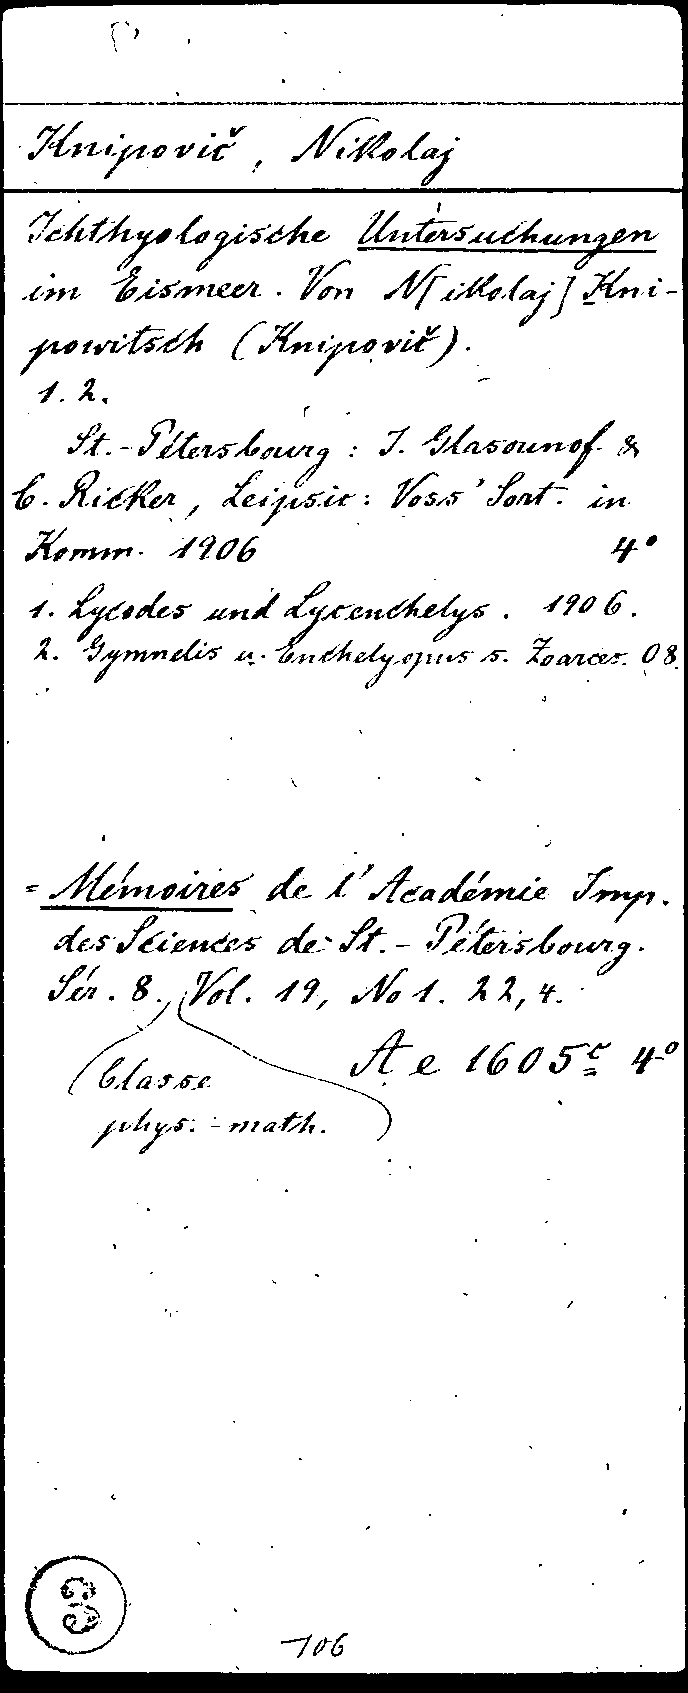 Knipovič, Nikolaj
Ichthyologische Untersuchungen
im Eismeer. Von N[ikolaj] Kni-
powitsch (Knipovič).
1. 2.
St.-Pétersbourg: J. Glasounof. &
C. Ricker, Leipsic: Voss' Sort. in
Komm. 1906 4°
1. Lycodes und Lycenchelys. 1906.
2. Gymnelis u. Enchelyopus s. Zoarces. 08.
= Mémoires de l'Académie Imp.
des Sciences de St.-Pétersbourg.
Sér. 8. Vol. 19, No 1. 22, 4.
(Classe
phys.-math.)
Ae 1605c 4°
3
106